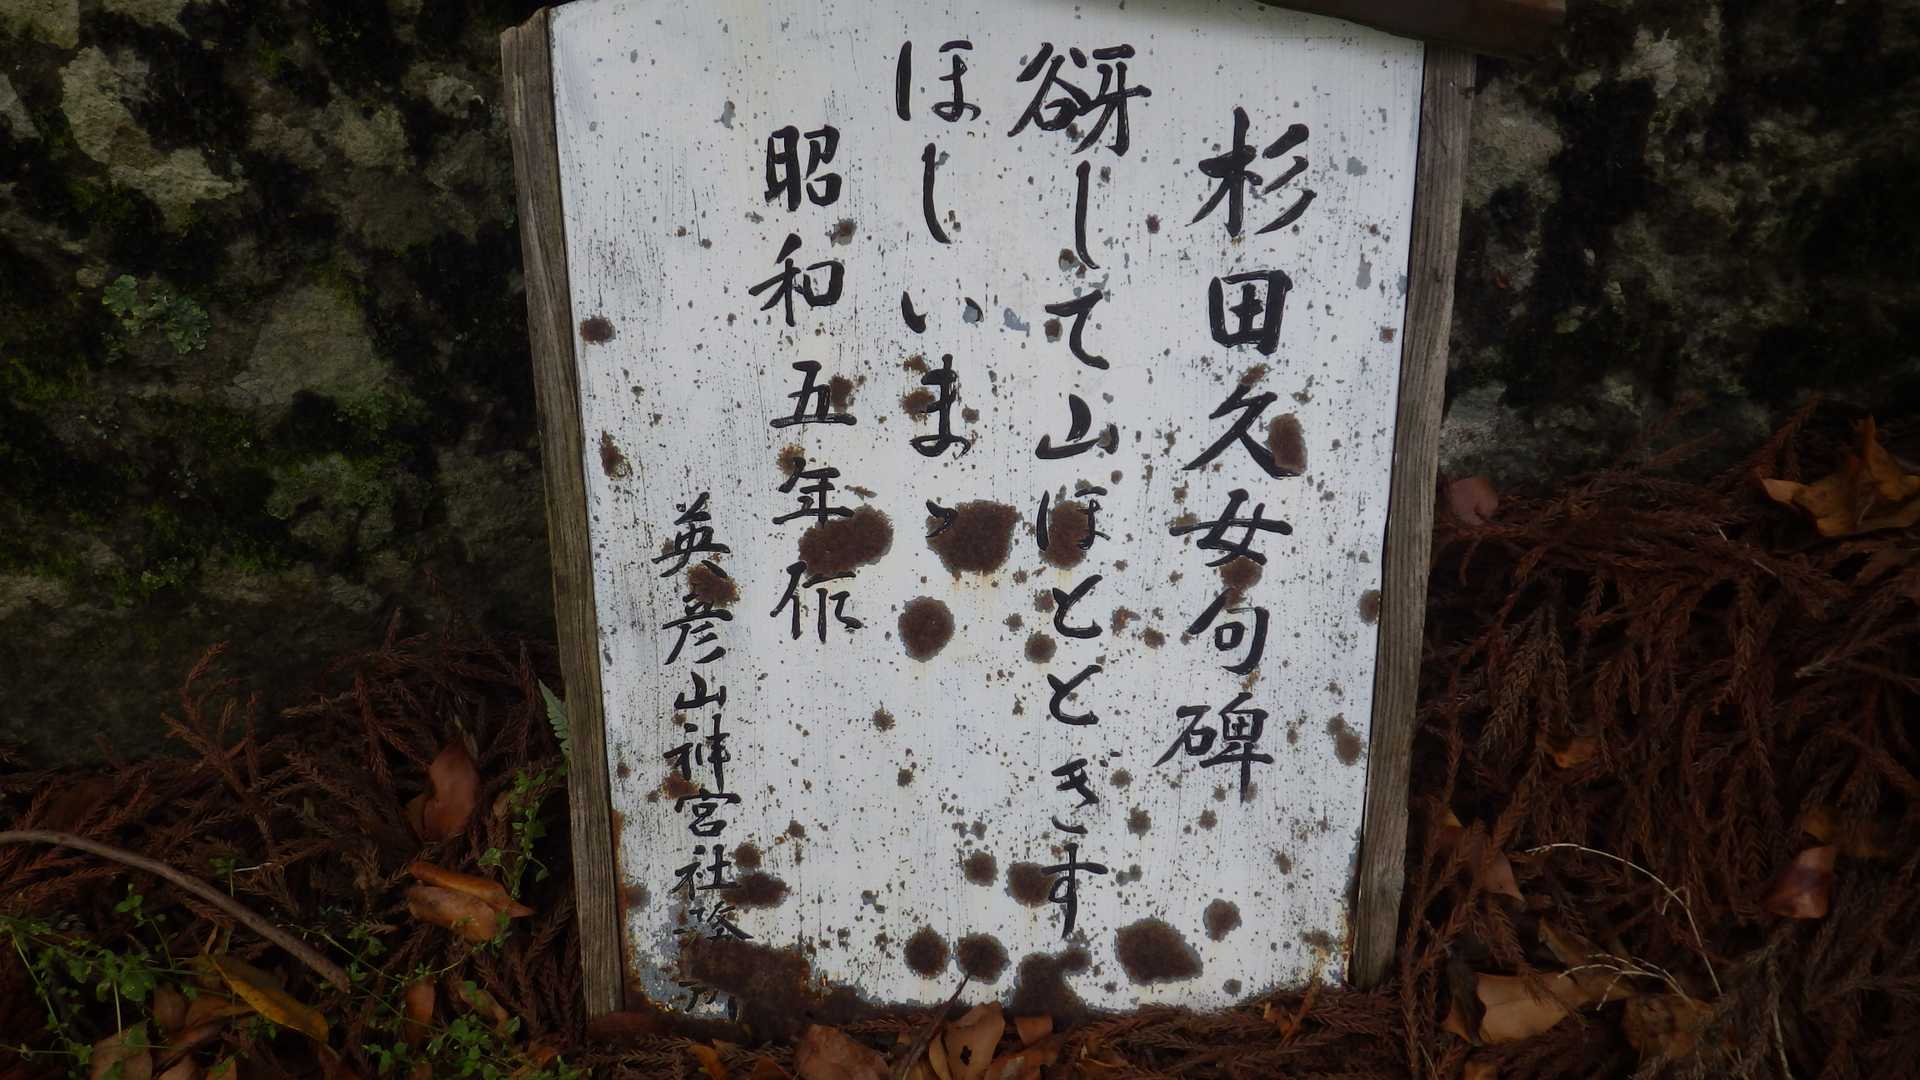 杉田久女句碑
谺して山ほととぎす
ほしいまゝ
昭和五年作
英彦山神宮社務所